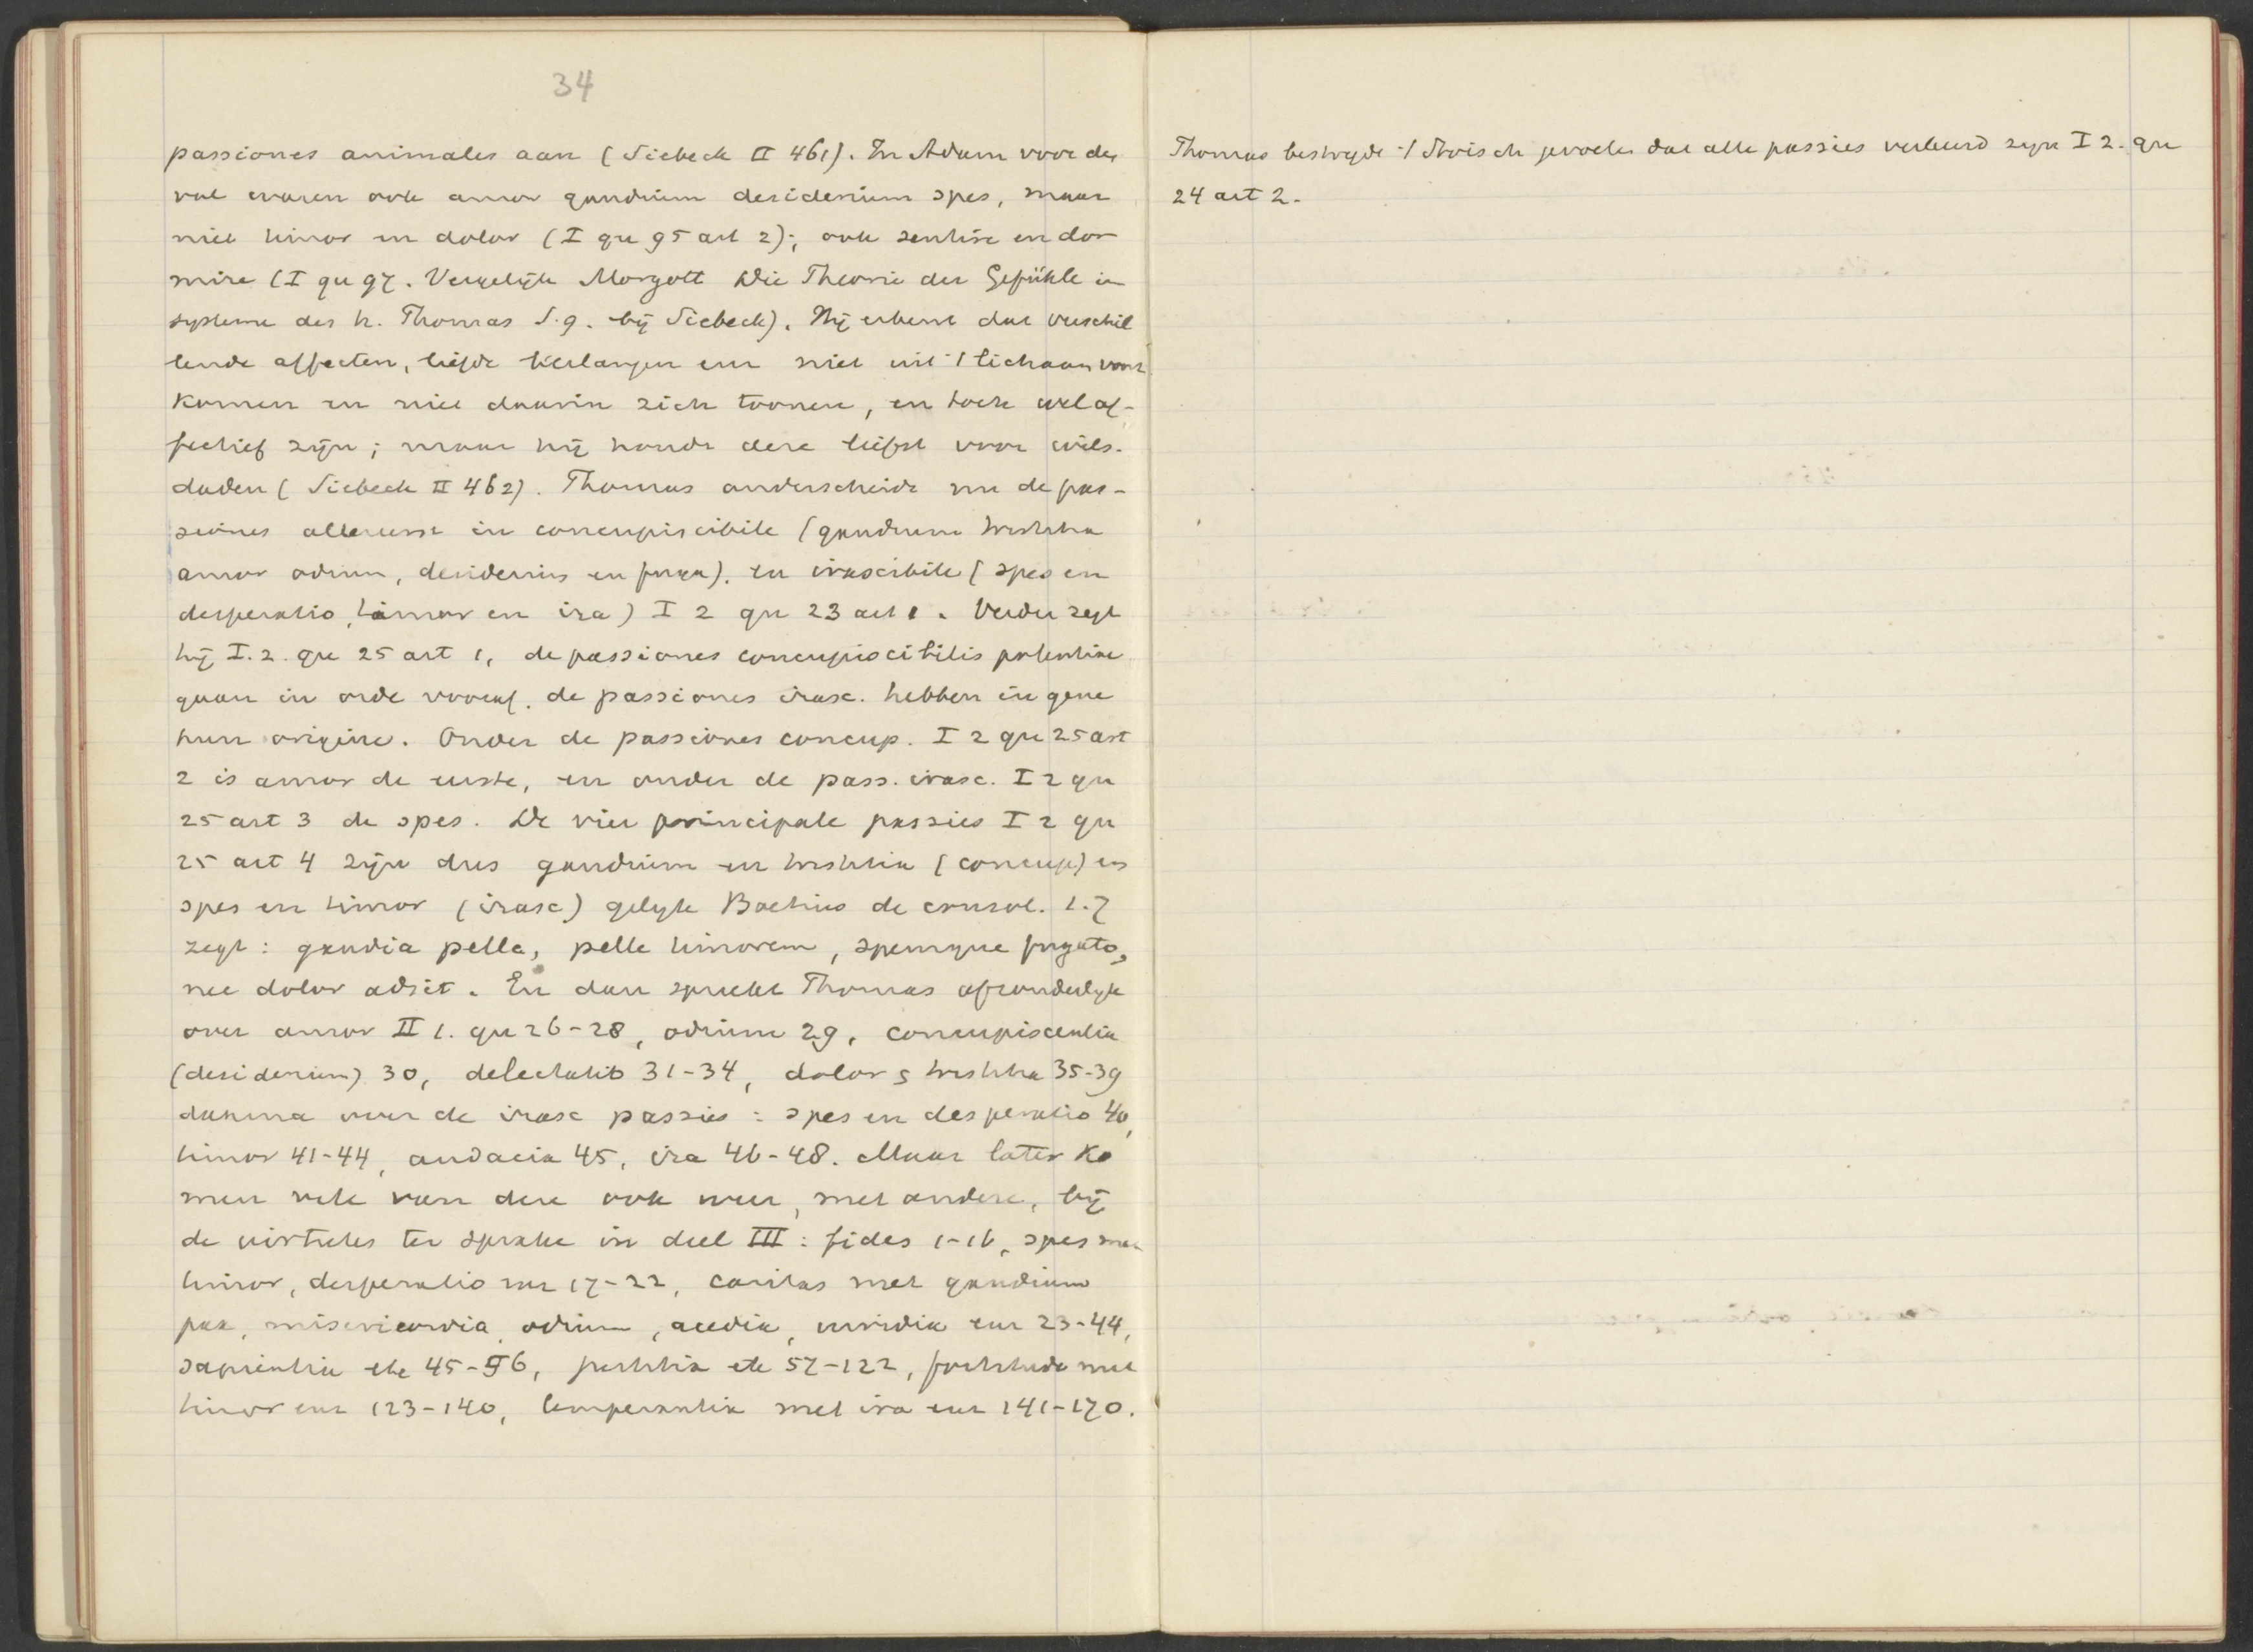 34
passiones animales aan (Siebeck II 461). In Adam voor den
val waren ook amor gaudium desiderium spes, maar
niet timor en dolor (I qu 95 art 2); ook sentire en dor
mire (I qu 97. Vergelijk Morgott Die Theorie der Gefühle im
systeme des h. Thomas S. 9. bij Siebeck). Hij erkent dat verschil
lende affecten, liefde verlangen enz niet uit 't lichaam voort
komen en niet daarin zich toonen, en toch wel af-
fectief zijn; maar hij houdt deze liefst voor wils-
daden (Siebeck II 462). Thomas onderscheidt nu de pas-
siones allereerst in concupiscibile (gaudium tristitia
amor odium, desiderium en fuga). en irascibile (spes en
desperatio, timor en ira) I 2 qu 23 art 1. Verder zegt
hij I. 2. qu 25 art 1, de passiones concupiscibilis potentiae
gaan in orde vooraf. de passiones irasc. hebben in gene
hun origine. Onder de passiones concup. I 2 qu 25 art
2 is amor de eerste, en onder de pass. irasc. I 2 qu
25 art 3 de spes. De vier principale passies I 2 qu
25 art 4 zijn dus gaudium en tristitia (concup) en
spes en timor (irasc) gelijk Boetius de consol. 1.7
zegt: gaudia pelle, pelle timorem, spemque fugato,
nec dolor adsit. En dan spreekt Thomas afzonderlijk
over amor II 1. qu 26-28, odium 29, concupiscentia
(desiderium) 30, delectatio 31-34, dolor s tristitia 35-39
daarna over de irasc passies: spes en desperatio 40,
timor 41-44, audacia 45, ira 46-48. Maar later ko
men vele van deze ook weer, met andere, bij
de virtutes ter sprake in deel III: fides 1-16, spes met
timor, desperatio enz 17-22, caritas met gaudium
pax, misericordia, odium, acedia, invidia enz 23-44,
sapientia etc 45-56, justitia etc 57-122, fortitudo met
timor enz 123-140, temperantia met ira enz 141-170.
Thomas bestrijdt 't Stoisch gevoelen dat alle passies verkeerd zijn I 2. qu
24 art 2.